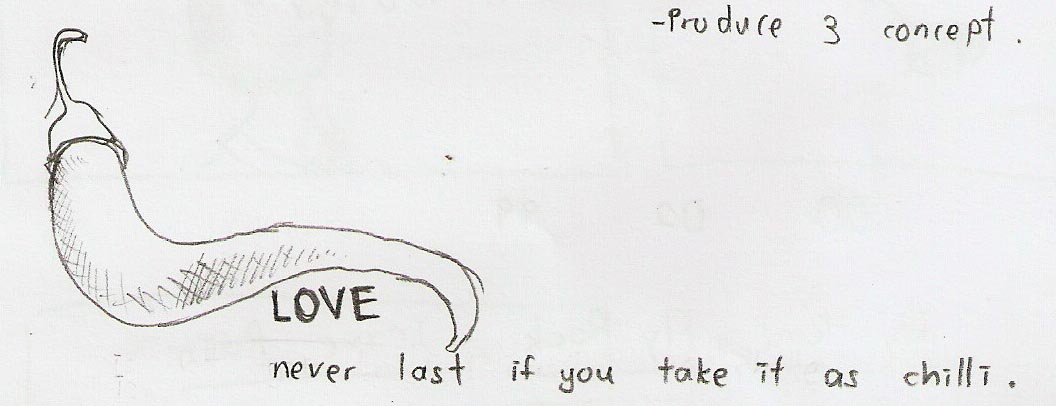 -Produce 3 concept.
LOVE
never last if you take it as chilli.